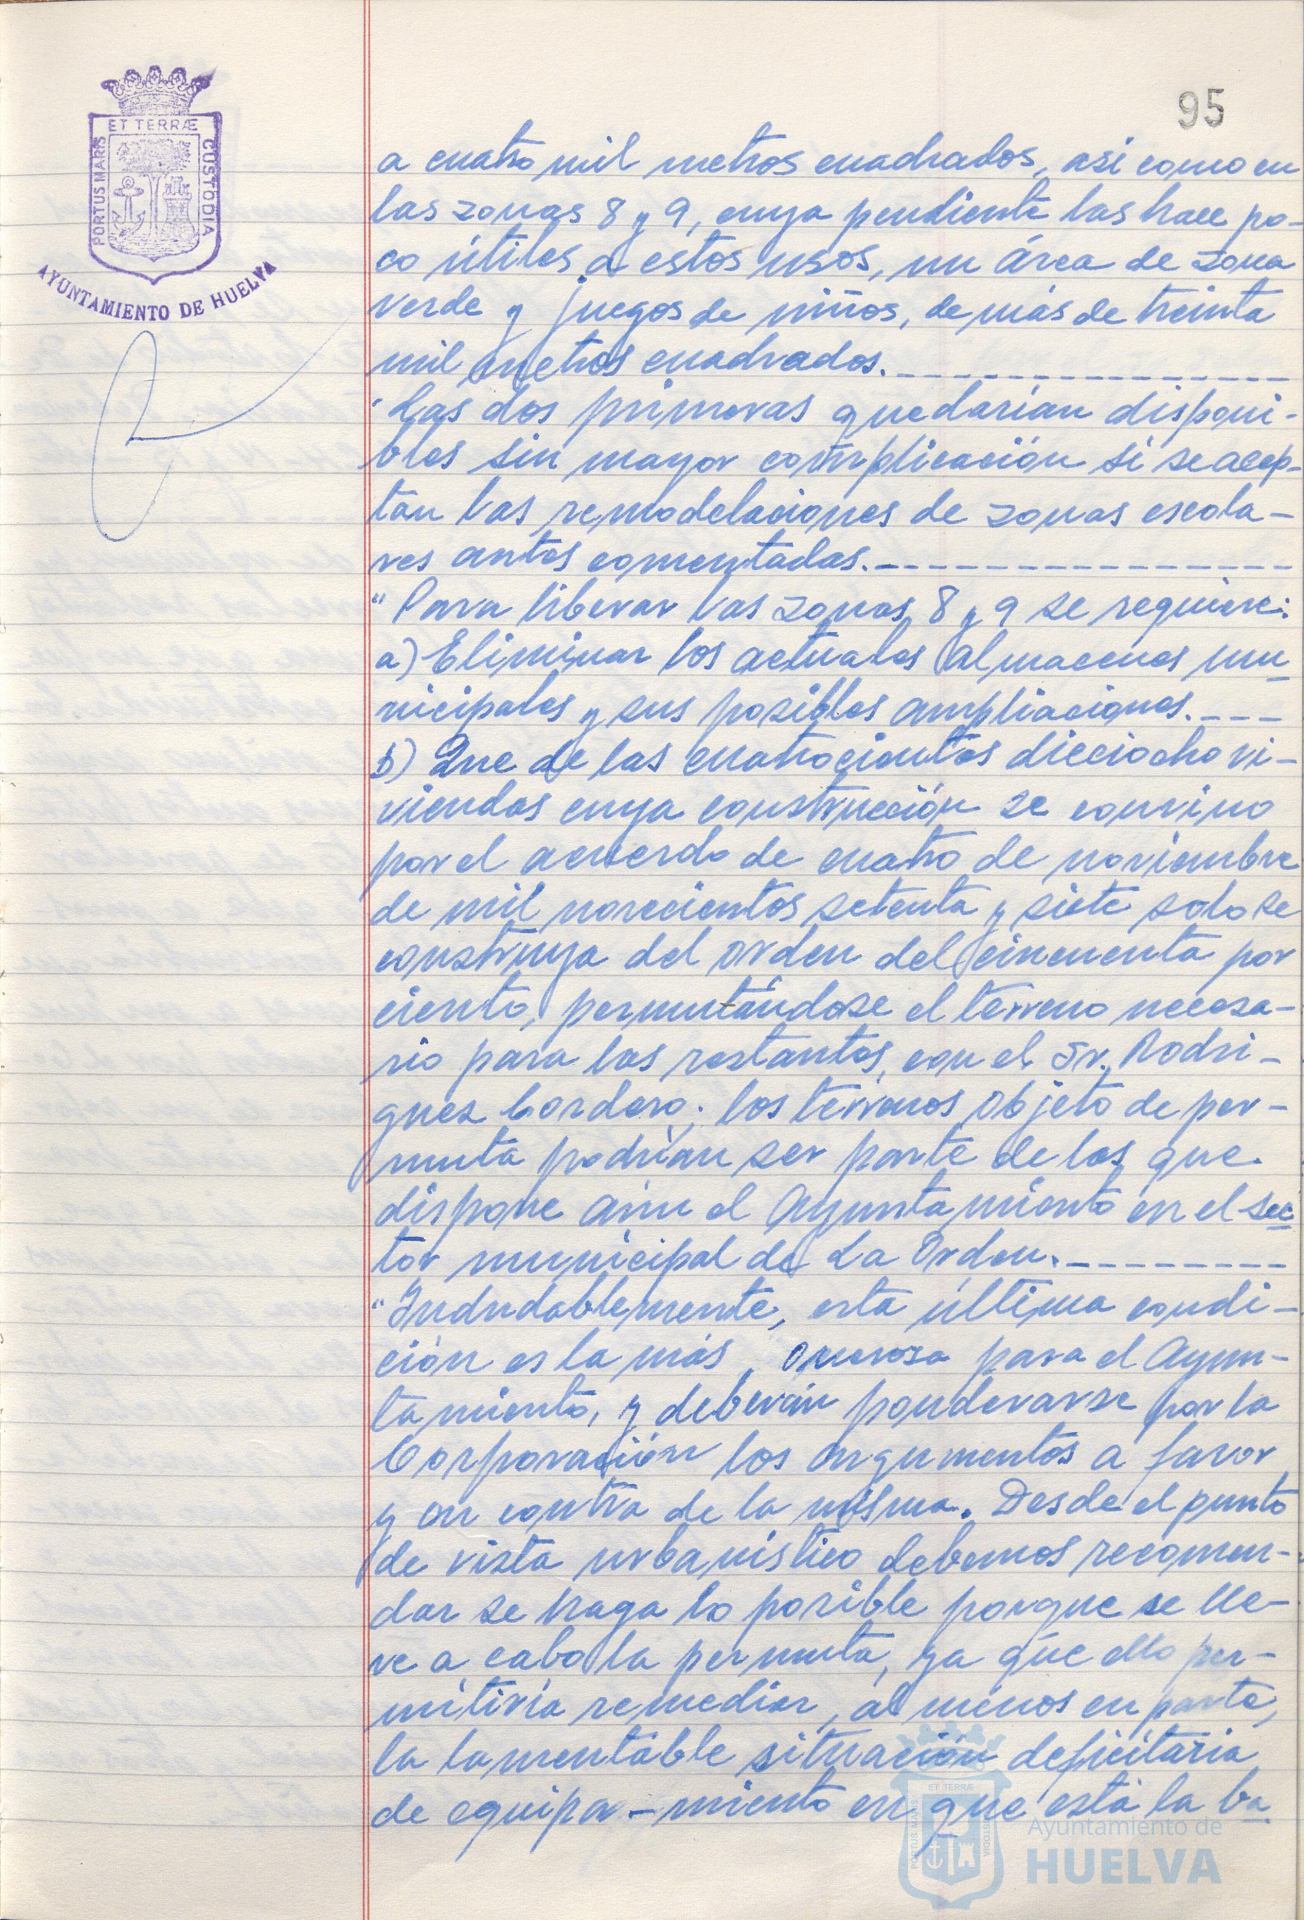 95
ET TERRÆ
PORTUS MARIS
CUSTODIA
AYUNTAMIENTO DE HUELVA
a cuatro mil metros cuadrados, así como en
las zonas 8 y 9, cuya pendiente las hace po-
co útiles a estos usos, un área de zona
verde y juegos de niños, de más de treinta
mil metros cuadrados.
"Las dos primeras quedarían disponi-
bles sin mayor complicación si se acep-
tan las remodelaciones de zonas escola-
res antes comentadas.
"Para liberar las zonas 8 y 9 se requiere:
a) Eliminar los actuales almacenes mu
nicipales y sus posibles ampliaciones.
b) Que de las cuatrocientos dieciocho vi-
viendas cuya construcción se convino
por el acuerdo de cuatro de noviembre
de mil novecientos setenta y siete solo se
construya del orden del cincuenta por
ciento, permutándose el terreno necesa-
rio para las restantes, con el Sr. Rodrí-
guez Cordero; los terrenos objeto de per-
muta podrían ser parte de los que
dispone aún el Ayuntamiento en el sec
tor municipal de La Orden.
"Indudablemente, esta última condi-
ción es la más onerosa para el Ayun-
tamiento, y deberán ponderarse por la
Corporación los argumentos a favor
y en contra de la misma. Desde el punto
de vista urbanístico debemos recomen-
dar se haga lo posible porque se lle-
ve a cabo la permuta, ya que ello per-
mitiría remediar, al menos en parte,
la lamentable situación deficitaria
de equipa-miento en que está la ba
ET TERRÆ
PORTUS MARIS
CUSTODIA
Ayuntamiento de
HUELVA